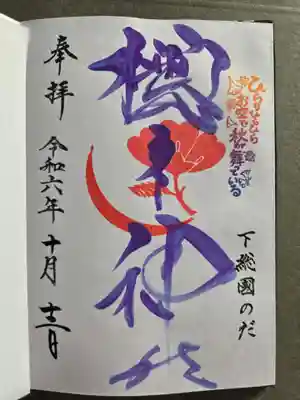 ひらひらひら
お空で秋が舞っている
下総國のだ
櫻木神社
奉拝
令和六年 十月